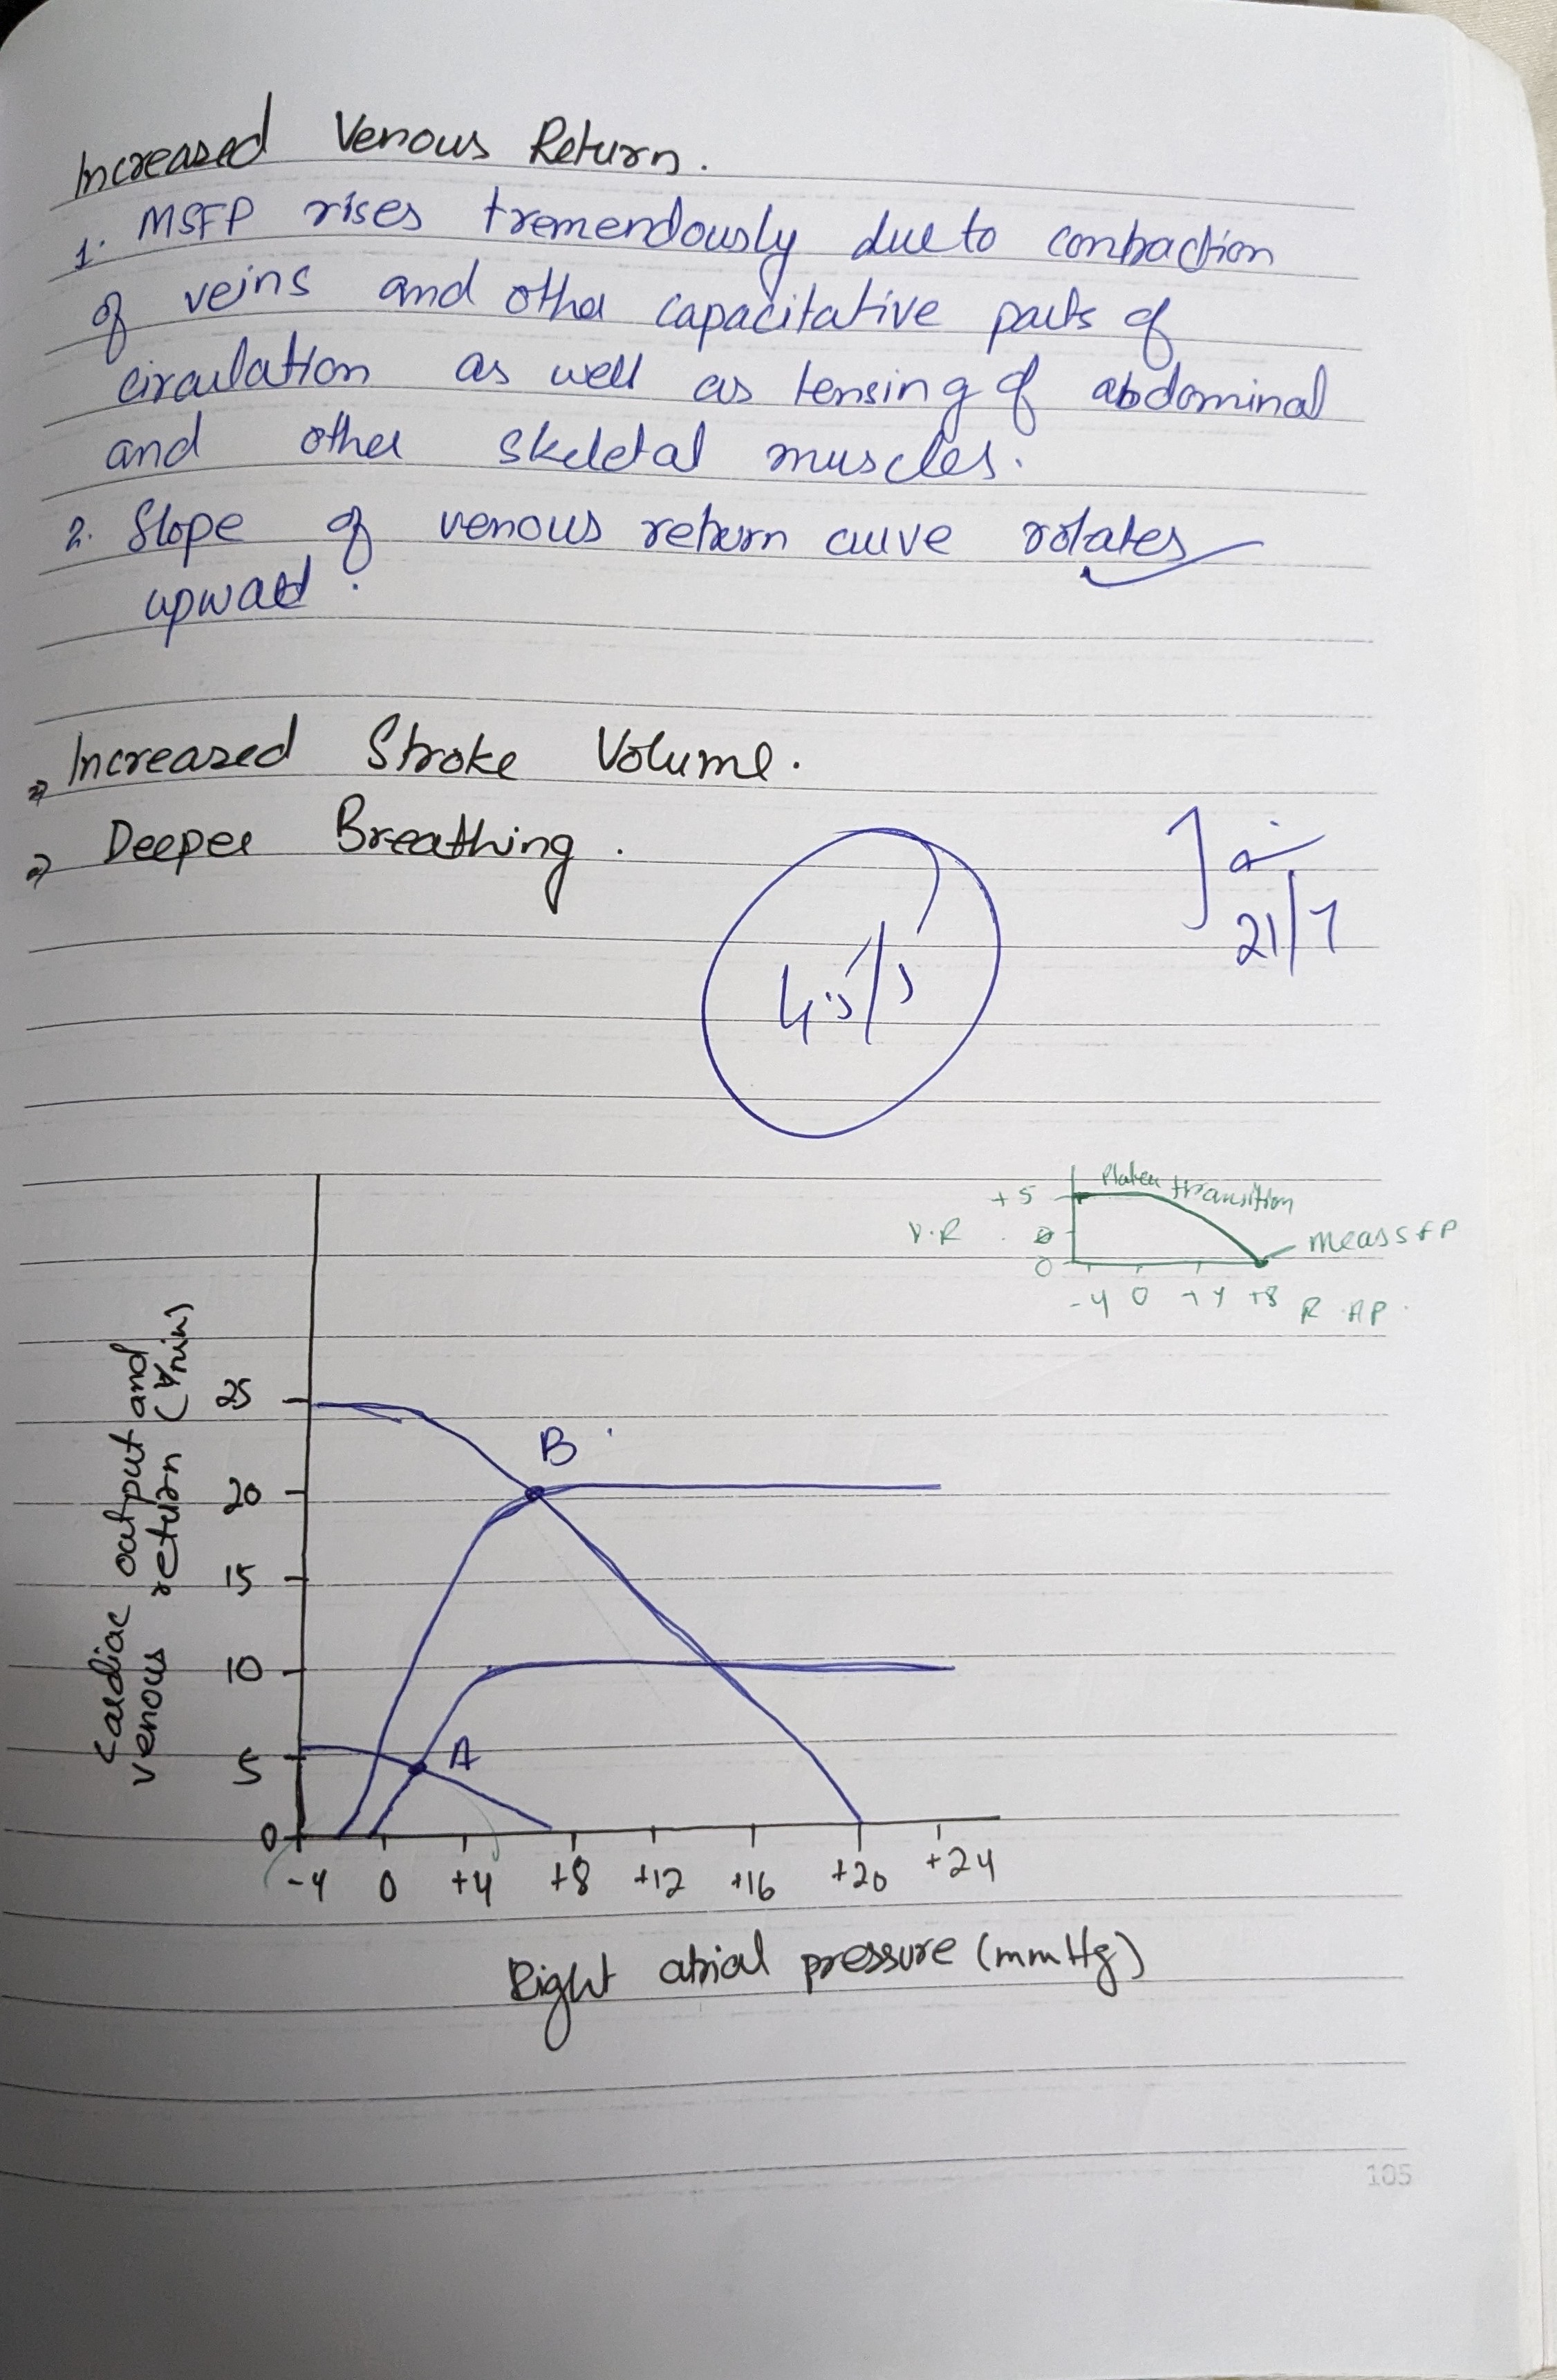 Increased Venous Return.
1. MSFP rises tremendously due to contraction
of veins and other capacitative parts of
circulation as well as tensing of abdominal
and other skeletal muscles.
2. Slope of venous return curve rotates
upward.
Increased Stroke Volume.
Deeper Breathing.
21/7
Plateu transition
+5
V.R
0
0
meas SFP
-4 0 +4 +8 R AP.
Cardiac output and
venous return (l/min)
25
B
20
15
10
A
5
0
-4 0 +4 +8 +12 +16 +20 +24
Right atrial pressure (mmHg)
105